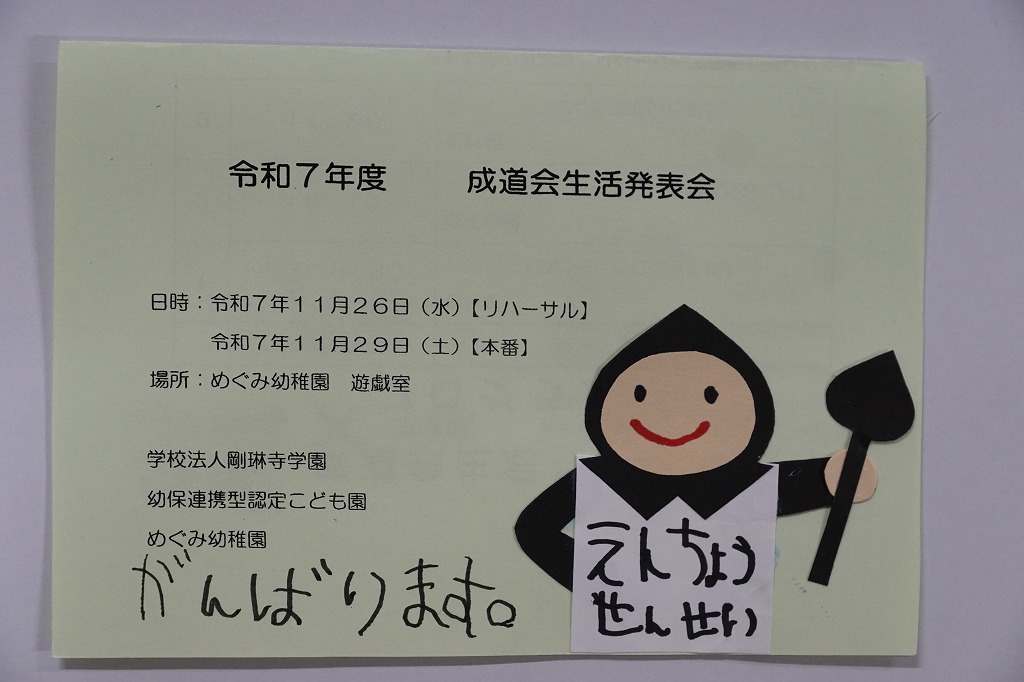 令和７年度　成道会生活発表会
日時：令和７年１１月２６日（水）【リハーサル】
令和７年１１月２９日（土）【本番】
場所：めぐみ幼稚園　遊戯室
学校法人剛琳寺学園
幼保連携型認定こども園
めぐみ幼稚園
がんばります。
えんちょう
せんせい